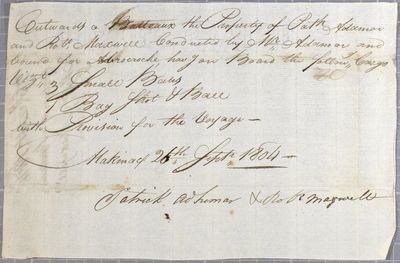 Outwards a Batteaux the Property of Patk Adamor
and Robt. Maxwell Conducted by Mr. Adamor and
bound for has on Board the follow,g Cargo
Viz.t 3 Small Bales
1 Bag Shot & Ball
with Provision for the Voyage —
Makinac 26th Septr. 1804 —
Patrick adhemar & Rob t. maxwell